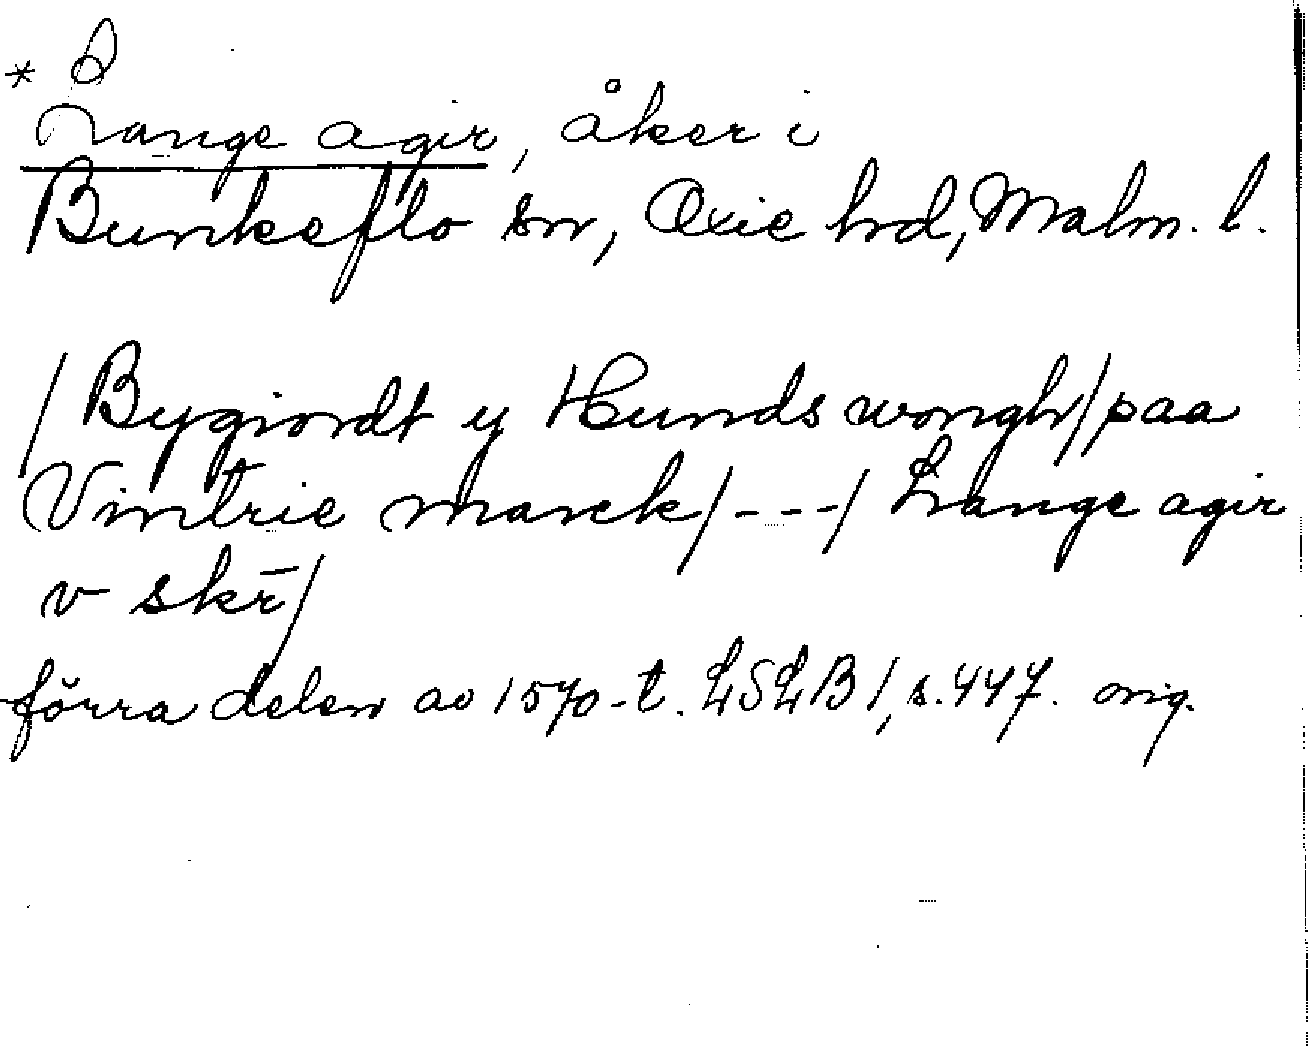 * Lange agir, åker i
Bunkeflo sn, Oxie hd, Malm. l.
/Bygiordt y Hunds wongh/paa
Vintrie marck/---/ Lange agir
v skr̄/
förra delen av 1570-t. LSLB 1, s. 447. orig.